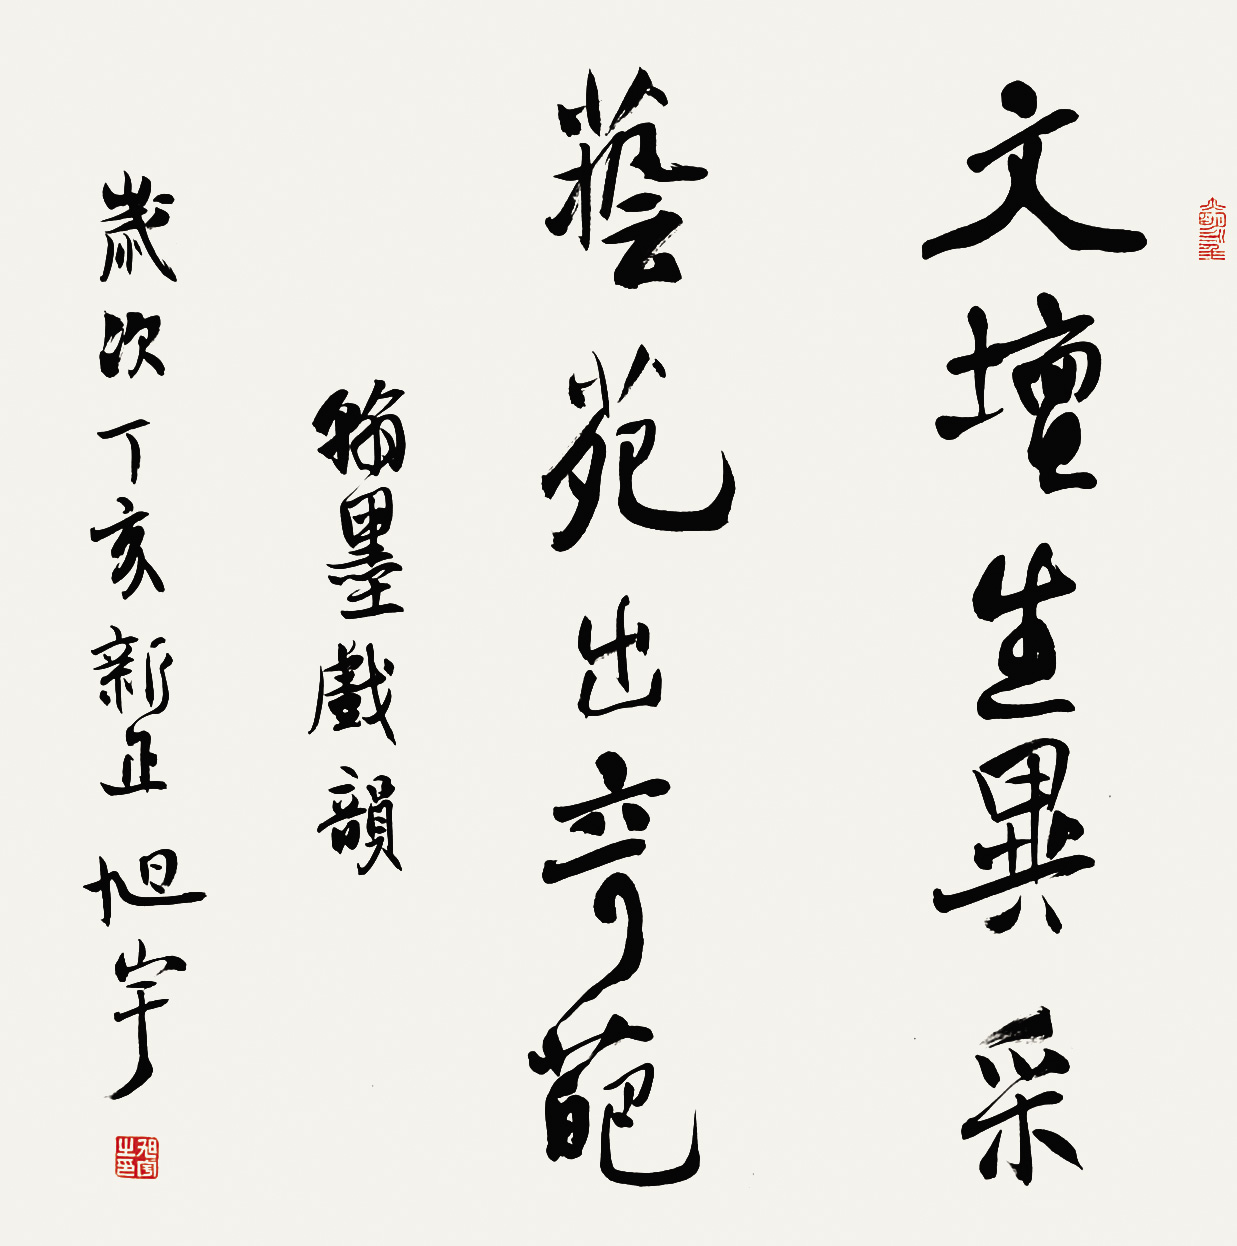 文壇生異采
藝苑出奇葩
翰墨戲韻
歲次丁亥新正 旭宇
旭宇之印